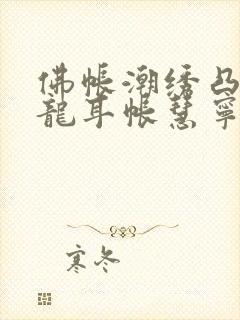 佛帐潮绣凸
龍耳帐慧寧
寒冬